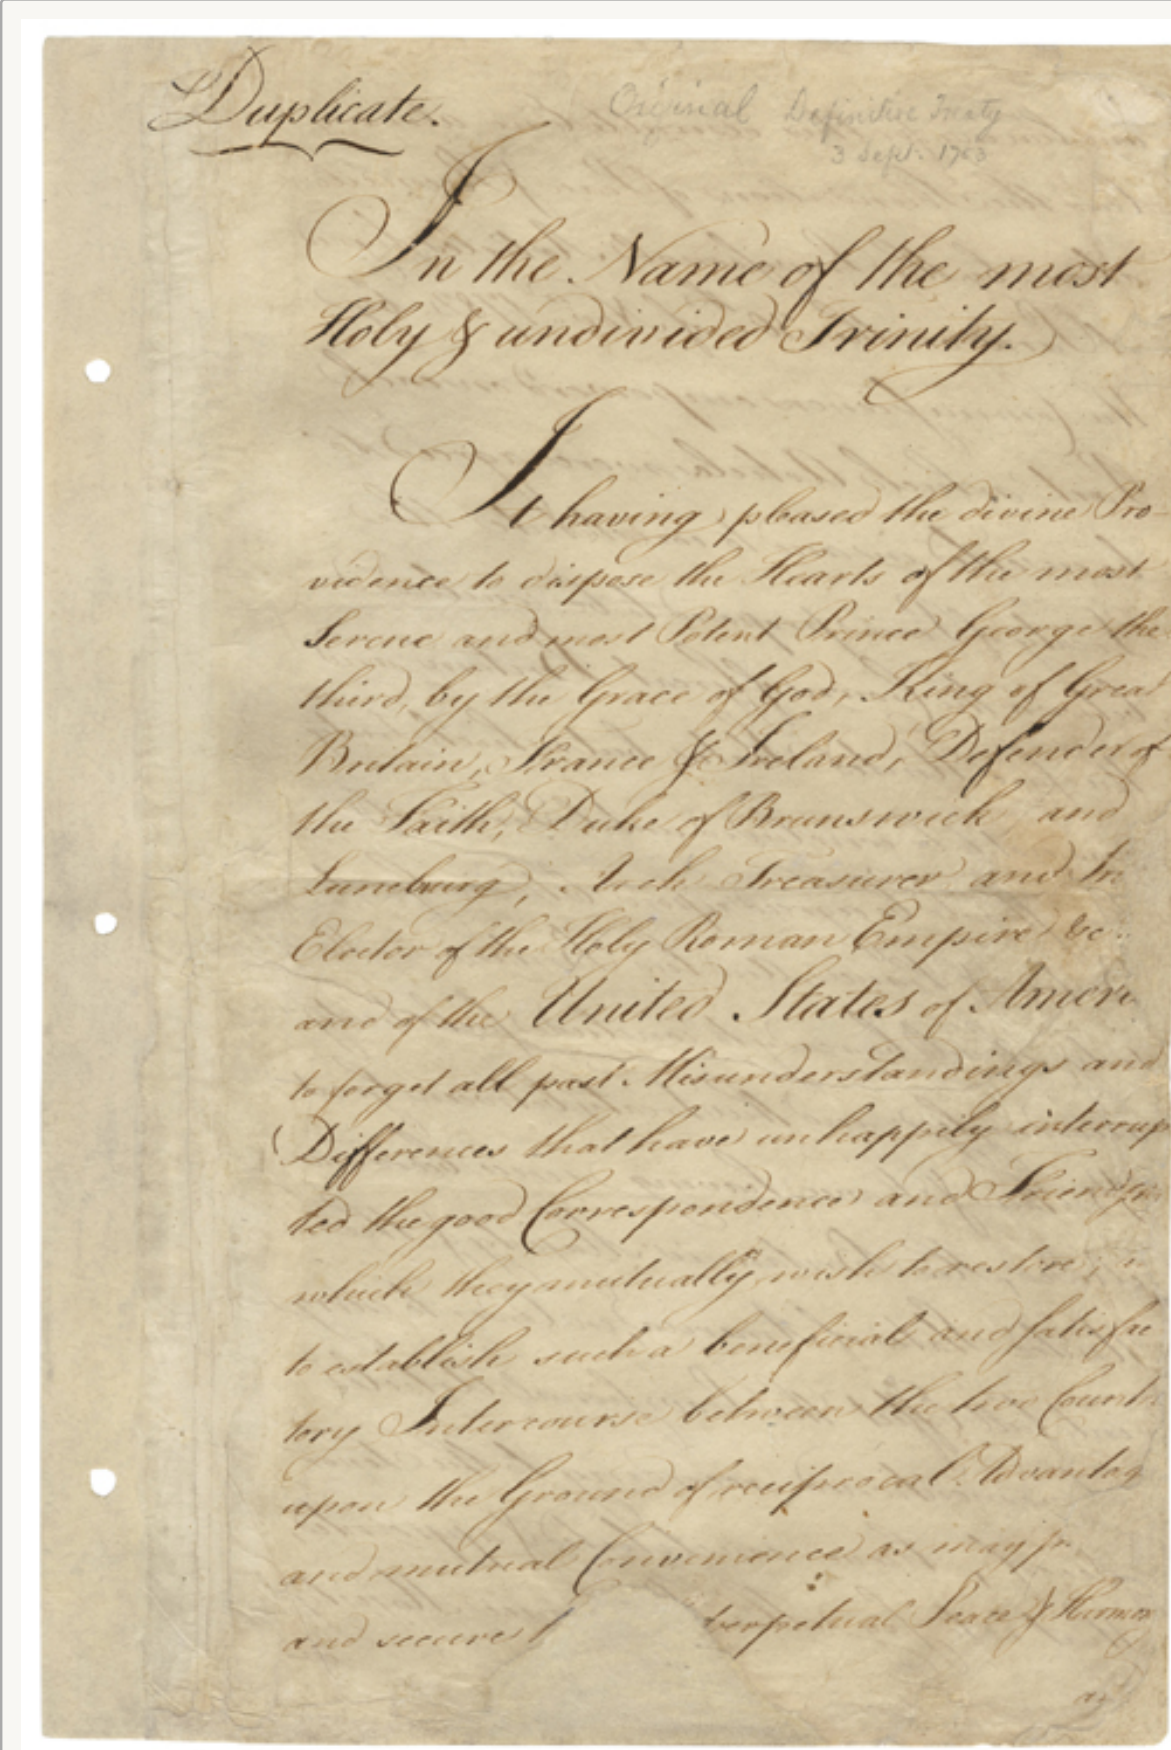 Duplicate.
Original Definitive Treaty
3 Sept. 1783
In the Name of the most
Holy & undivided Trinity.
It having pleased the divine Pro-
vidence to dispose the Hearts of the most
Serene and most Potent Prince George the
third, by the Grace of God, King of Great
Britain, France & Ireland, Defender of
the Faith, Duke of Brunswick and
Luneburg, Arch Treasurer and
Elector of the Holy Roman Empire &c.
and of the United States of Ameri
to forget all past Misunderstandings and
Differences that have unhappily interrup
ted the good Correspondence and Friendship
which they mutually wish to restore;
to establish such a beneficial and satisfac
tory Intercourse between the two Countr
upon the Ground of reciprocal Advantag
and mutual Convenience as may
and secure t perpetual Peace & Harmon